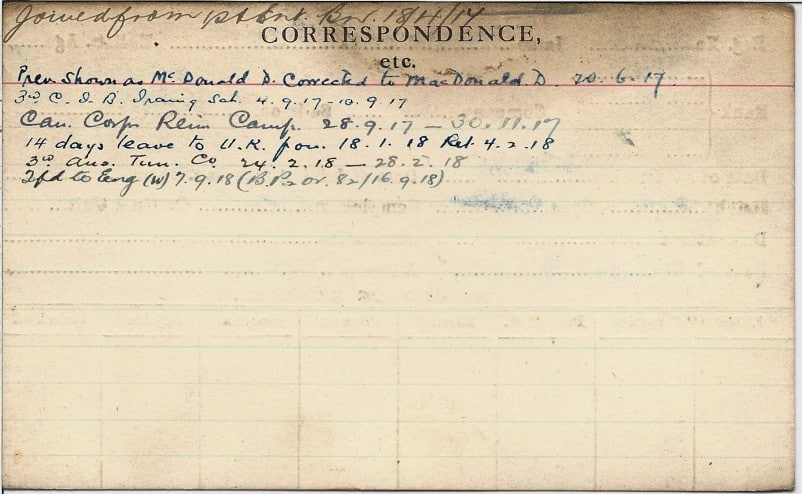 Joined from pt Ent. Bn. 18/4/17
CORRESPONDENCE,
etc.
Prev. Shown as McDonald D. Corrected to MacDonald. D. 20.6.17.
3rd C. I. B. Sch. 4.9.17-10.9.17
Can. Corps Rein Camp. 28.9.17 — 30.11.17
14 days leave to U.K. from 18.1.18 Ret. 4.2.18
3rd Aus. Tun. Co. 24.2.18 — 28.2.18
Tfd to Eng (W) 7.9.18 (B.P.2 or. 82/16.9.18)